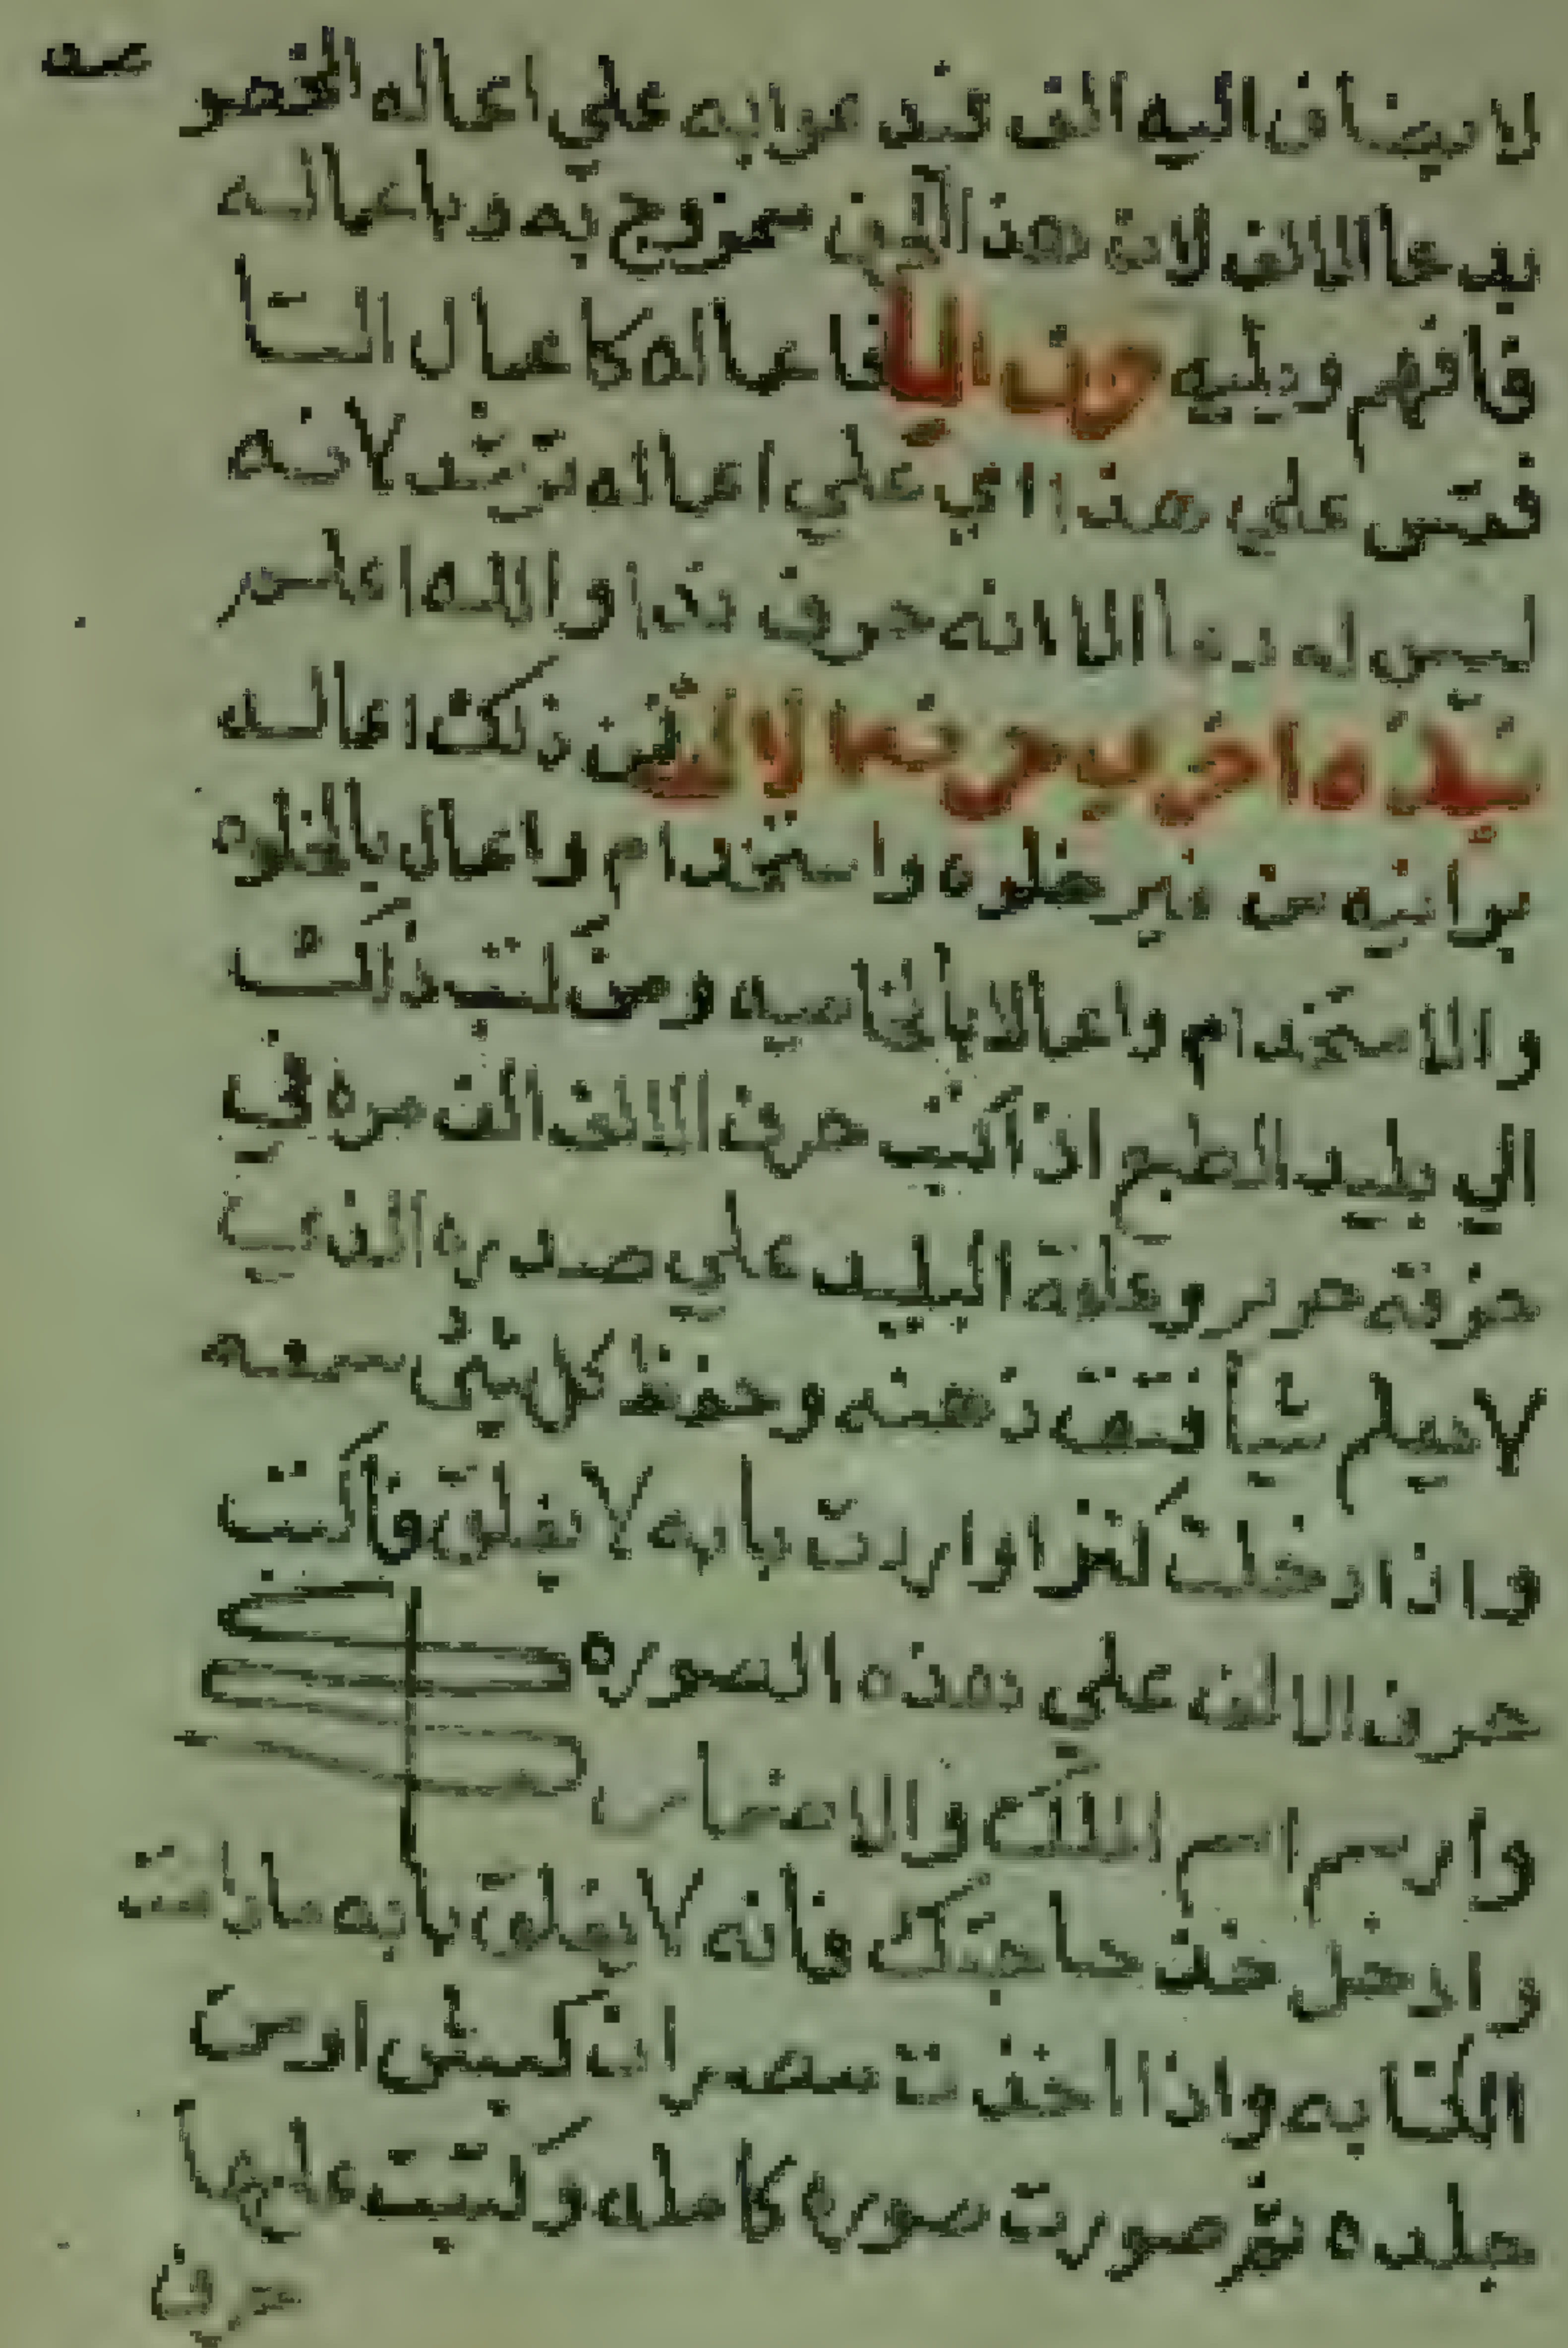 لا يضاف اليه الف فند عوابه علي اعماله المخصو صه
بدعا الالف لان هذا الحرف ممزوج به وباعماله
فافهم ويليه حرف اليا فاعماله كاعمال التا
فقس علي هذا اي علي اعماله ترشد لانه
ليس له دعا الا انه حرف ندا والله اعلم
نبذه اخري من خط الالف فمن ذلك اعماله
برانيه من غير خلوه واستخدام واعمال بالخلوه
والاستخدام واعمالا بالخاصيه ومن ذلك
الي بليد الطبع اذا كتب حرف الالف الف مره في
خرقه حرير وعلقه البليد علي صدره الذي
لا يعلم شيا فتق ذهنه وحفظ كل شي سمعه
واذا دخلت كنزا واردت بابه لا يغلق فاكتب
حرف الالف علي هذه الصوره
وارسم اسم الملك والاضمار
وادخل خذ حاجتك فانه لا يغلق بابه مادامت
الكتابه واذا اخذت مصران كبش او من
جلده ثم صورت صوره كامله وكتبت عليها
حرف